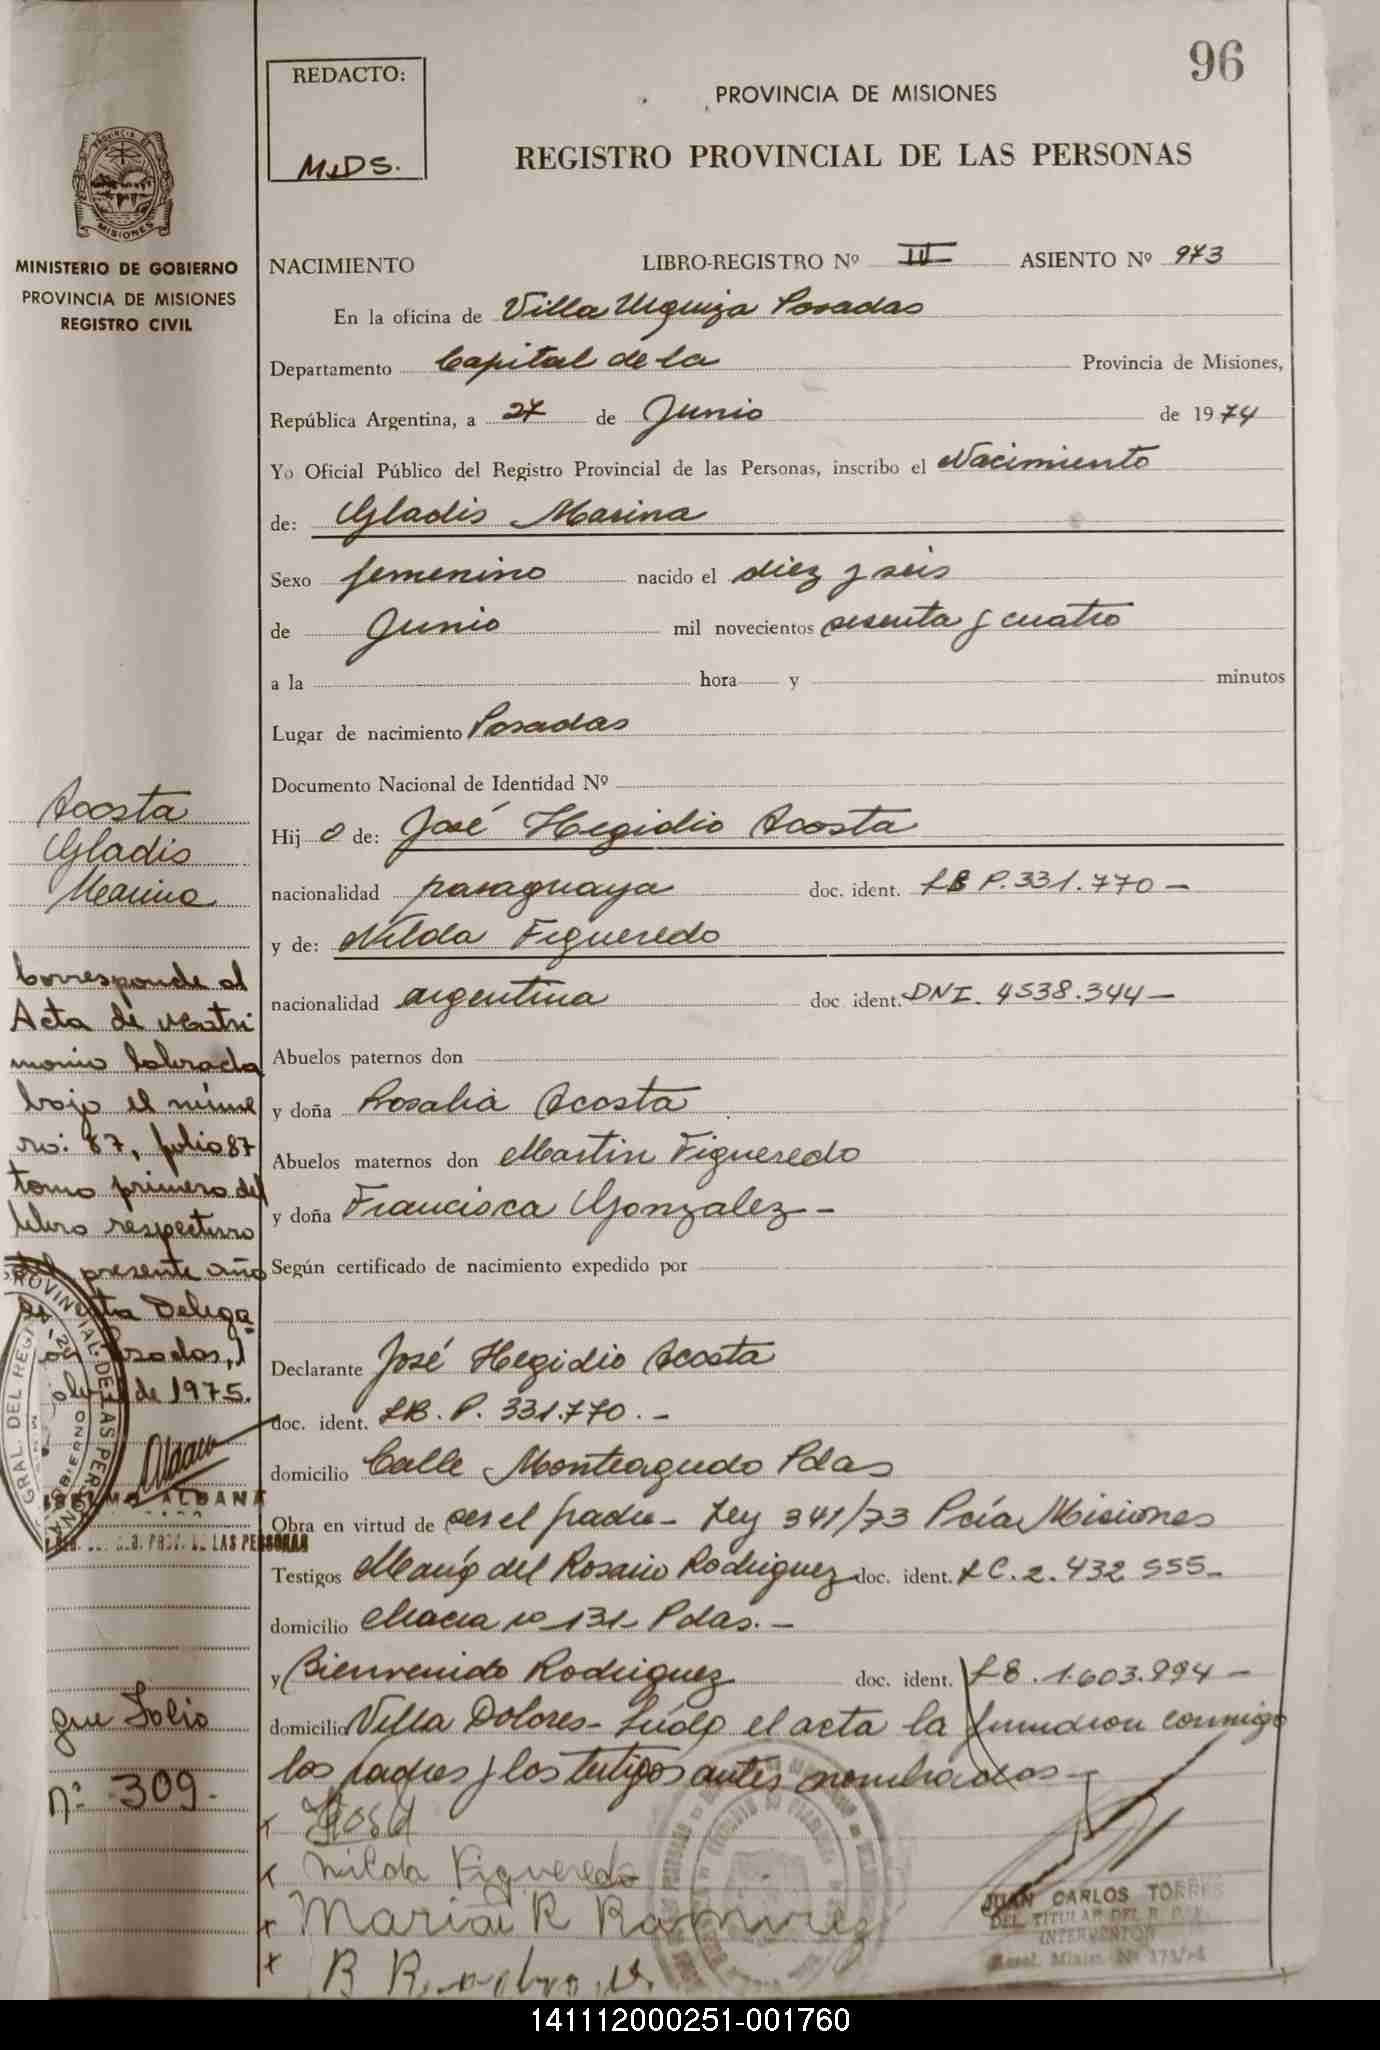 96
REDACTO:
M.DS.
PROVINCIA DE MISIONES
REGISTRO PROVINCIAL DE LAS PERSONAS
PROVINCIA DE
MISIONES
MINISTERIO DE GOBIERNO
PROVINCIA DE MISIONES
REGISTRO CIVIL
NACIMIENTO LIBRO-REGISTRO Nº III ASIENTO Nº 973
En la oficina de Villa Urquiza Posadas
Departamento Capital de la Provincia de Misiones,
República Argentina, a 27 de Junio de 1974
Yo Oficial Público del Registro Provincial de las Personas, inscribo el Nacimiento
de: Gladis Marina
Sexo femenino nacido el diez y seis
de Junio mil novecientos sesenta y cuatro
a la hora y minutos
Lugar de nacimiento Posadas
Documento Nacional de Identidad Nº
Hij o de: José Hegidio Acosta
nacionalidad paraguaya doc. ident. LB P.331.770 -
y de: Nilda Figueredo
nacionalidad argentina doc. ident. DNI. 4538.344 -
Abuelos paternos don
y doña Rosalia Acosta
Abuelos maternos don Martin Figueredo
y doña Francisca Gonzalez -
Según certificado de nacimiento expedido por
Declarante José Hegidio Acosta
doc. ident. LB. P. 331.770. -
domicilio Calle Monteagudo Pdas
Obra en virtud de ser el padre - Ley 341/73 Pcia Misiones
Testigos María del Rosario Rodriguez doc. ident. LC. 2.432 555-
domicilio Chacra nº 131 Pdas. -
y Bienvenido Rodriguez doc. ident. LB. 1.603.894 -
domicilio Villa Dolores - Leída el acta la firmaron conmigo
los padres y los testigos antes nombrados -
x José
x Nilda Figueredo
x Maria R Ramirez
x B R
JUAN CARLOS TORRES
DEL. TITULAR DEL R.
INTERVENTOR
Resol. Minist. Nº
Acosta
Gladis
Marina
Corresponde al
Acta de Matri
monio labrada
bajo el núme
ro: 87, folio 87
tomo primero del
libro respectivo
del presente año
Delega
Posadas,
de 1975.
GRAL. DEL REG. PROVINCIAL DE LAS PERSONAS
ALDANA
PROV. DE LAS PERSONAS
gue Folio
nº 309.
141112000251-001760